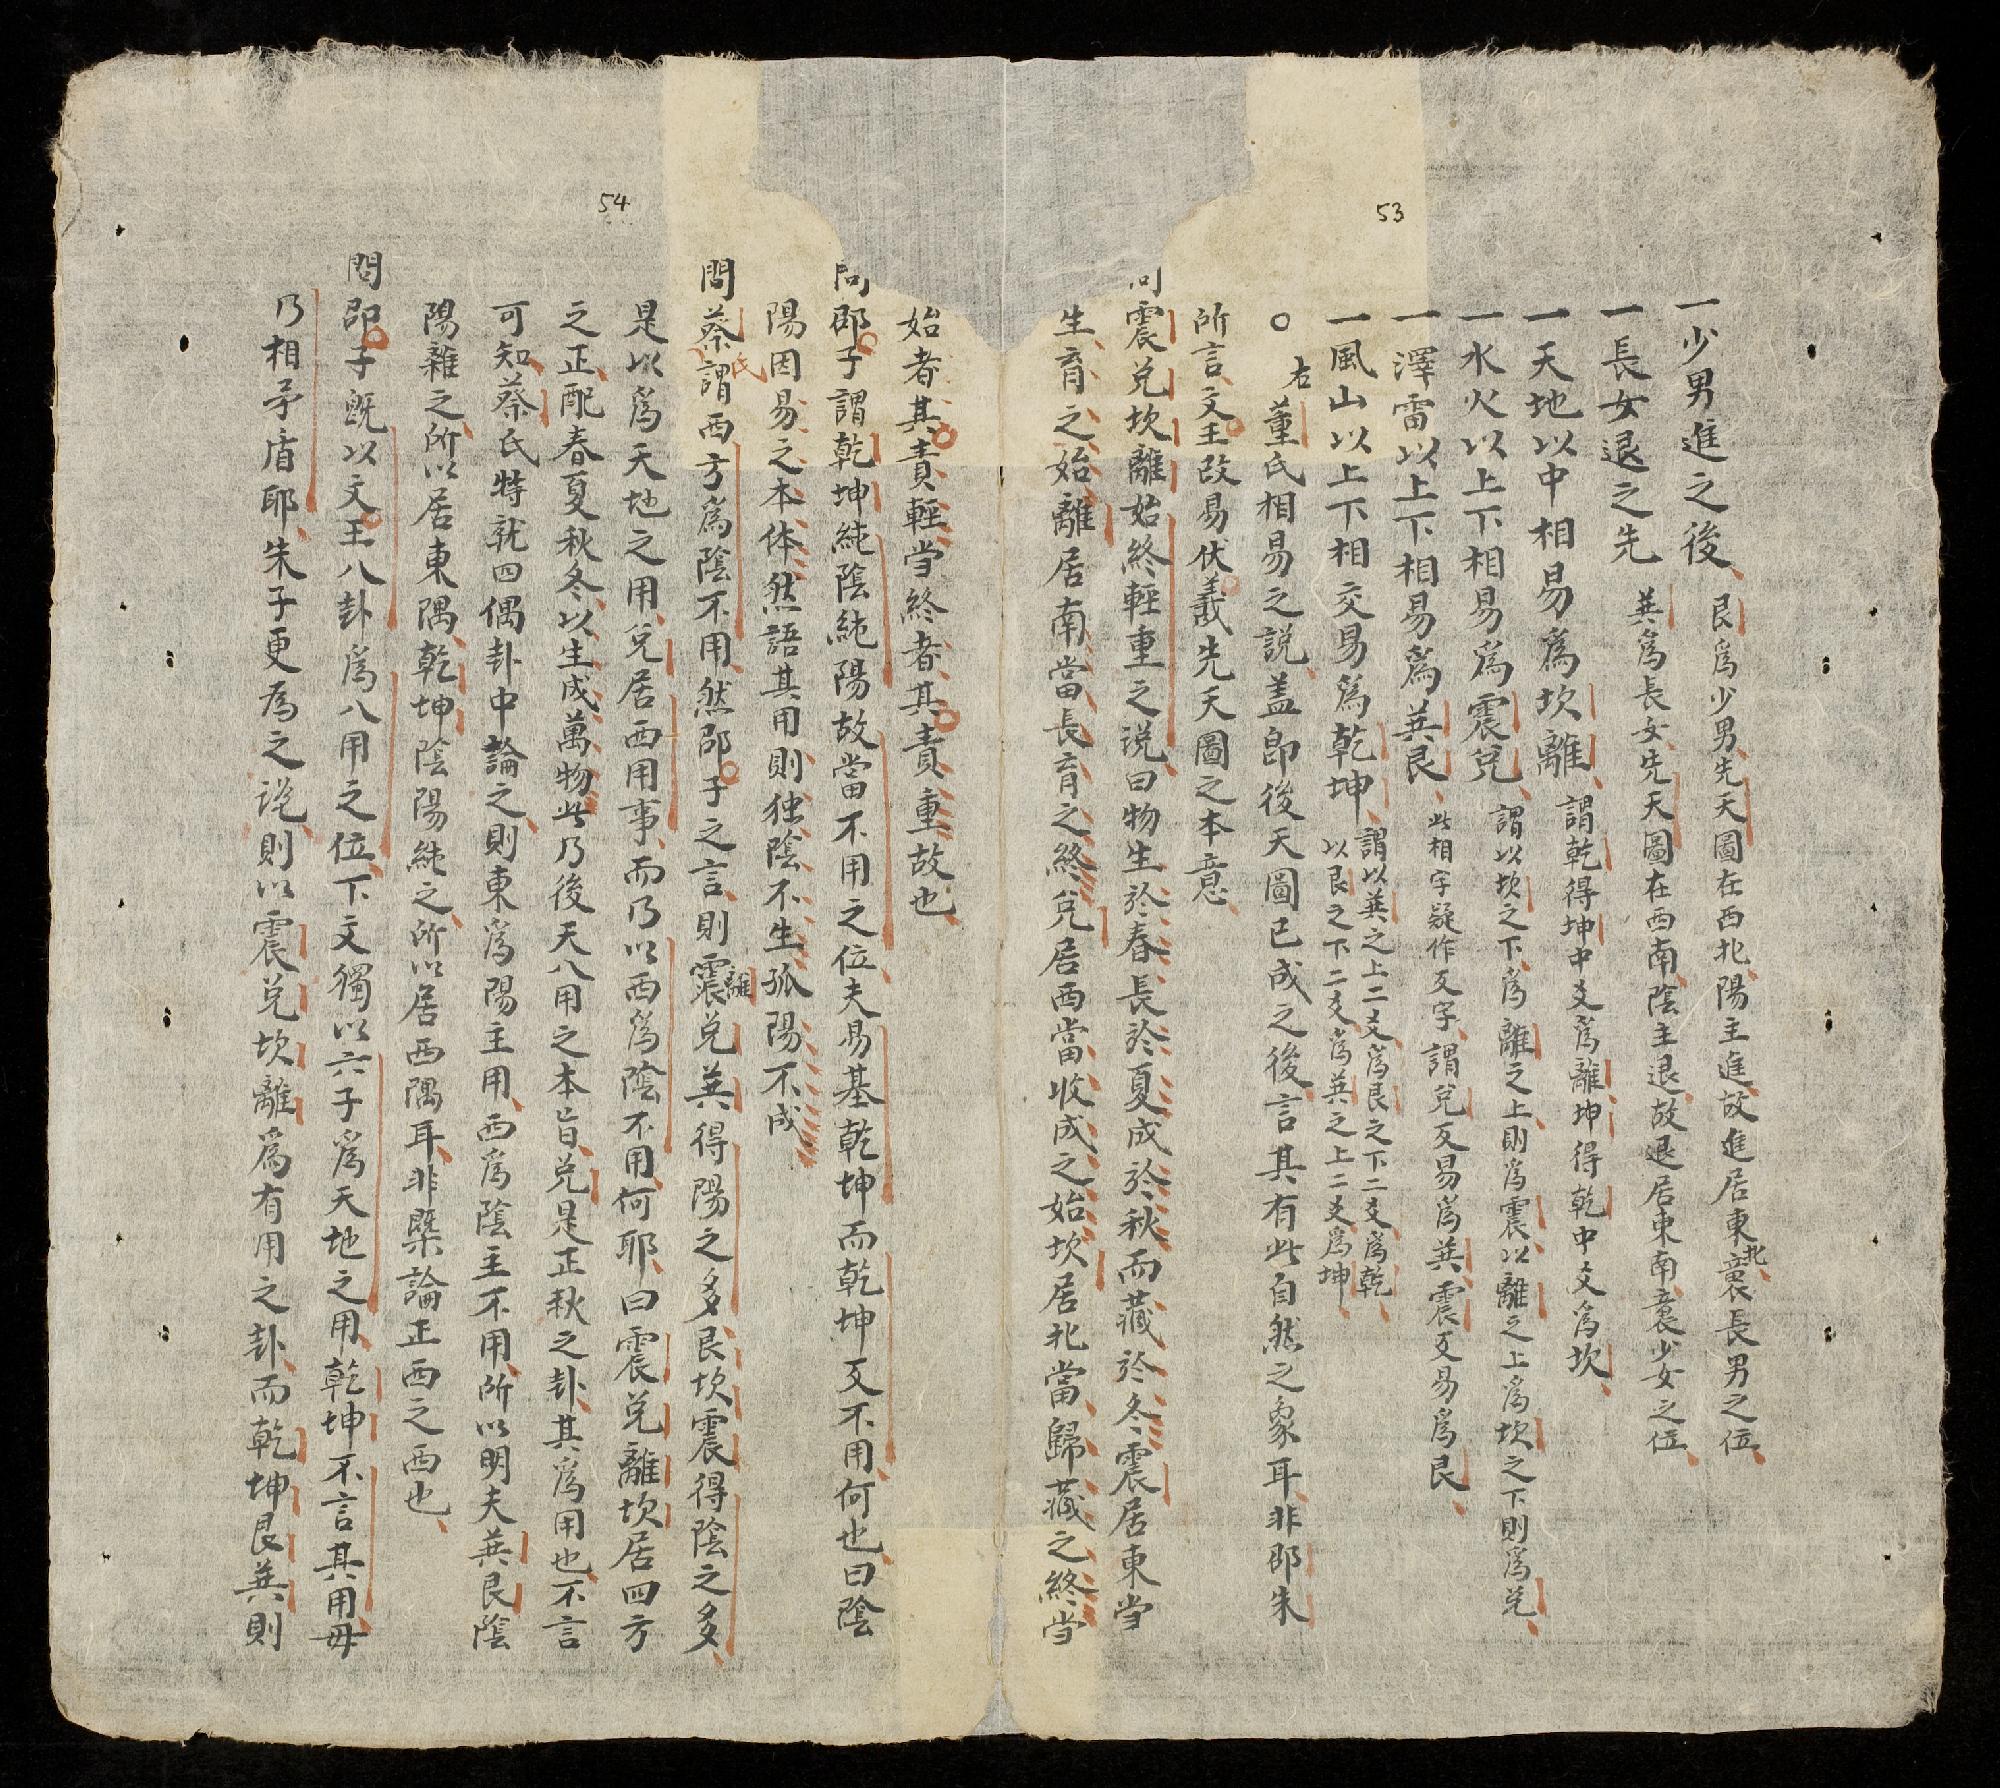 53
一少男進之後 艮爲少男先天圖在西北陽主進故進居東北襄長男之位
一長女退之先 巽爲長女先天圖在西南陰主退故退居東南襄少女之位
一天地以中相易爲坎離 謂乾得坤中爻爲離坤得乾中爻爲坎
一水火以上下相易爲震兌 謂以坎之下爲離之上則爲震以離之上爲坎之下則爲兌
一澤雷以上下相易爲巽艮 此相字疑作互字謂兌互易爲巽震互易爲艮
一風山以上下相交易爲乾坤 謂以巽之上二爻爲艮之下二爻爲乾
以艮之下二爻爲巽之上二爻爲坤
○右董氏相易之說盖卽後天圖已成之後言其有此自然之象耳非邵朱
所言文王改易伏羲先天圖之本意
問震兌坎離始終輕重之說曰物生於春長於夏成於秋而藏於冬震居東当
生育之始離居南當長育之終兌居西當收成之始坎居北當歸藏之終当
始者其責輕当終者其責重故也
問邵子謂乾坤純陰純陽故當不用之位夫易基乾坤而乾坤互不用何也曰陰
陽因易之本体然語其用則独陰不生孤陽不成
54
問蔡氏謂西方爲陰不用然邵子之言則震離兌巽得陽之多艮坎震得陰之多
是以爲天地之用兌居西用事而乃以西爲陰不用何耶曰震兌離坎居四方
之正配春夏秋冬以生成萬物此乃後天八用之本旨兌是正秋之卦其爲用也不言
可知蔡氏特就四偶卦中論之則東爲陽主用西爲陰主不用所以明夫巽艮陰
陽雜之所以居東隅乾坤陰陽純之所以居西隅耳非槩論正西之西也
問邵子旣以文王八卦爲八用之位下文獨以六子爲天地之用乾坤不言其用毋
乃相矛盾耶朱子更爲之說則以震兌坎離爲有用之卦而乾坤艮巽則